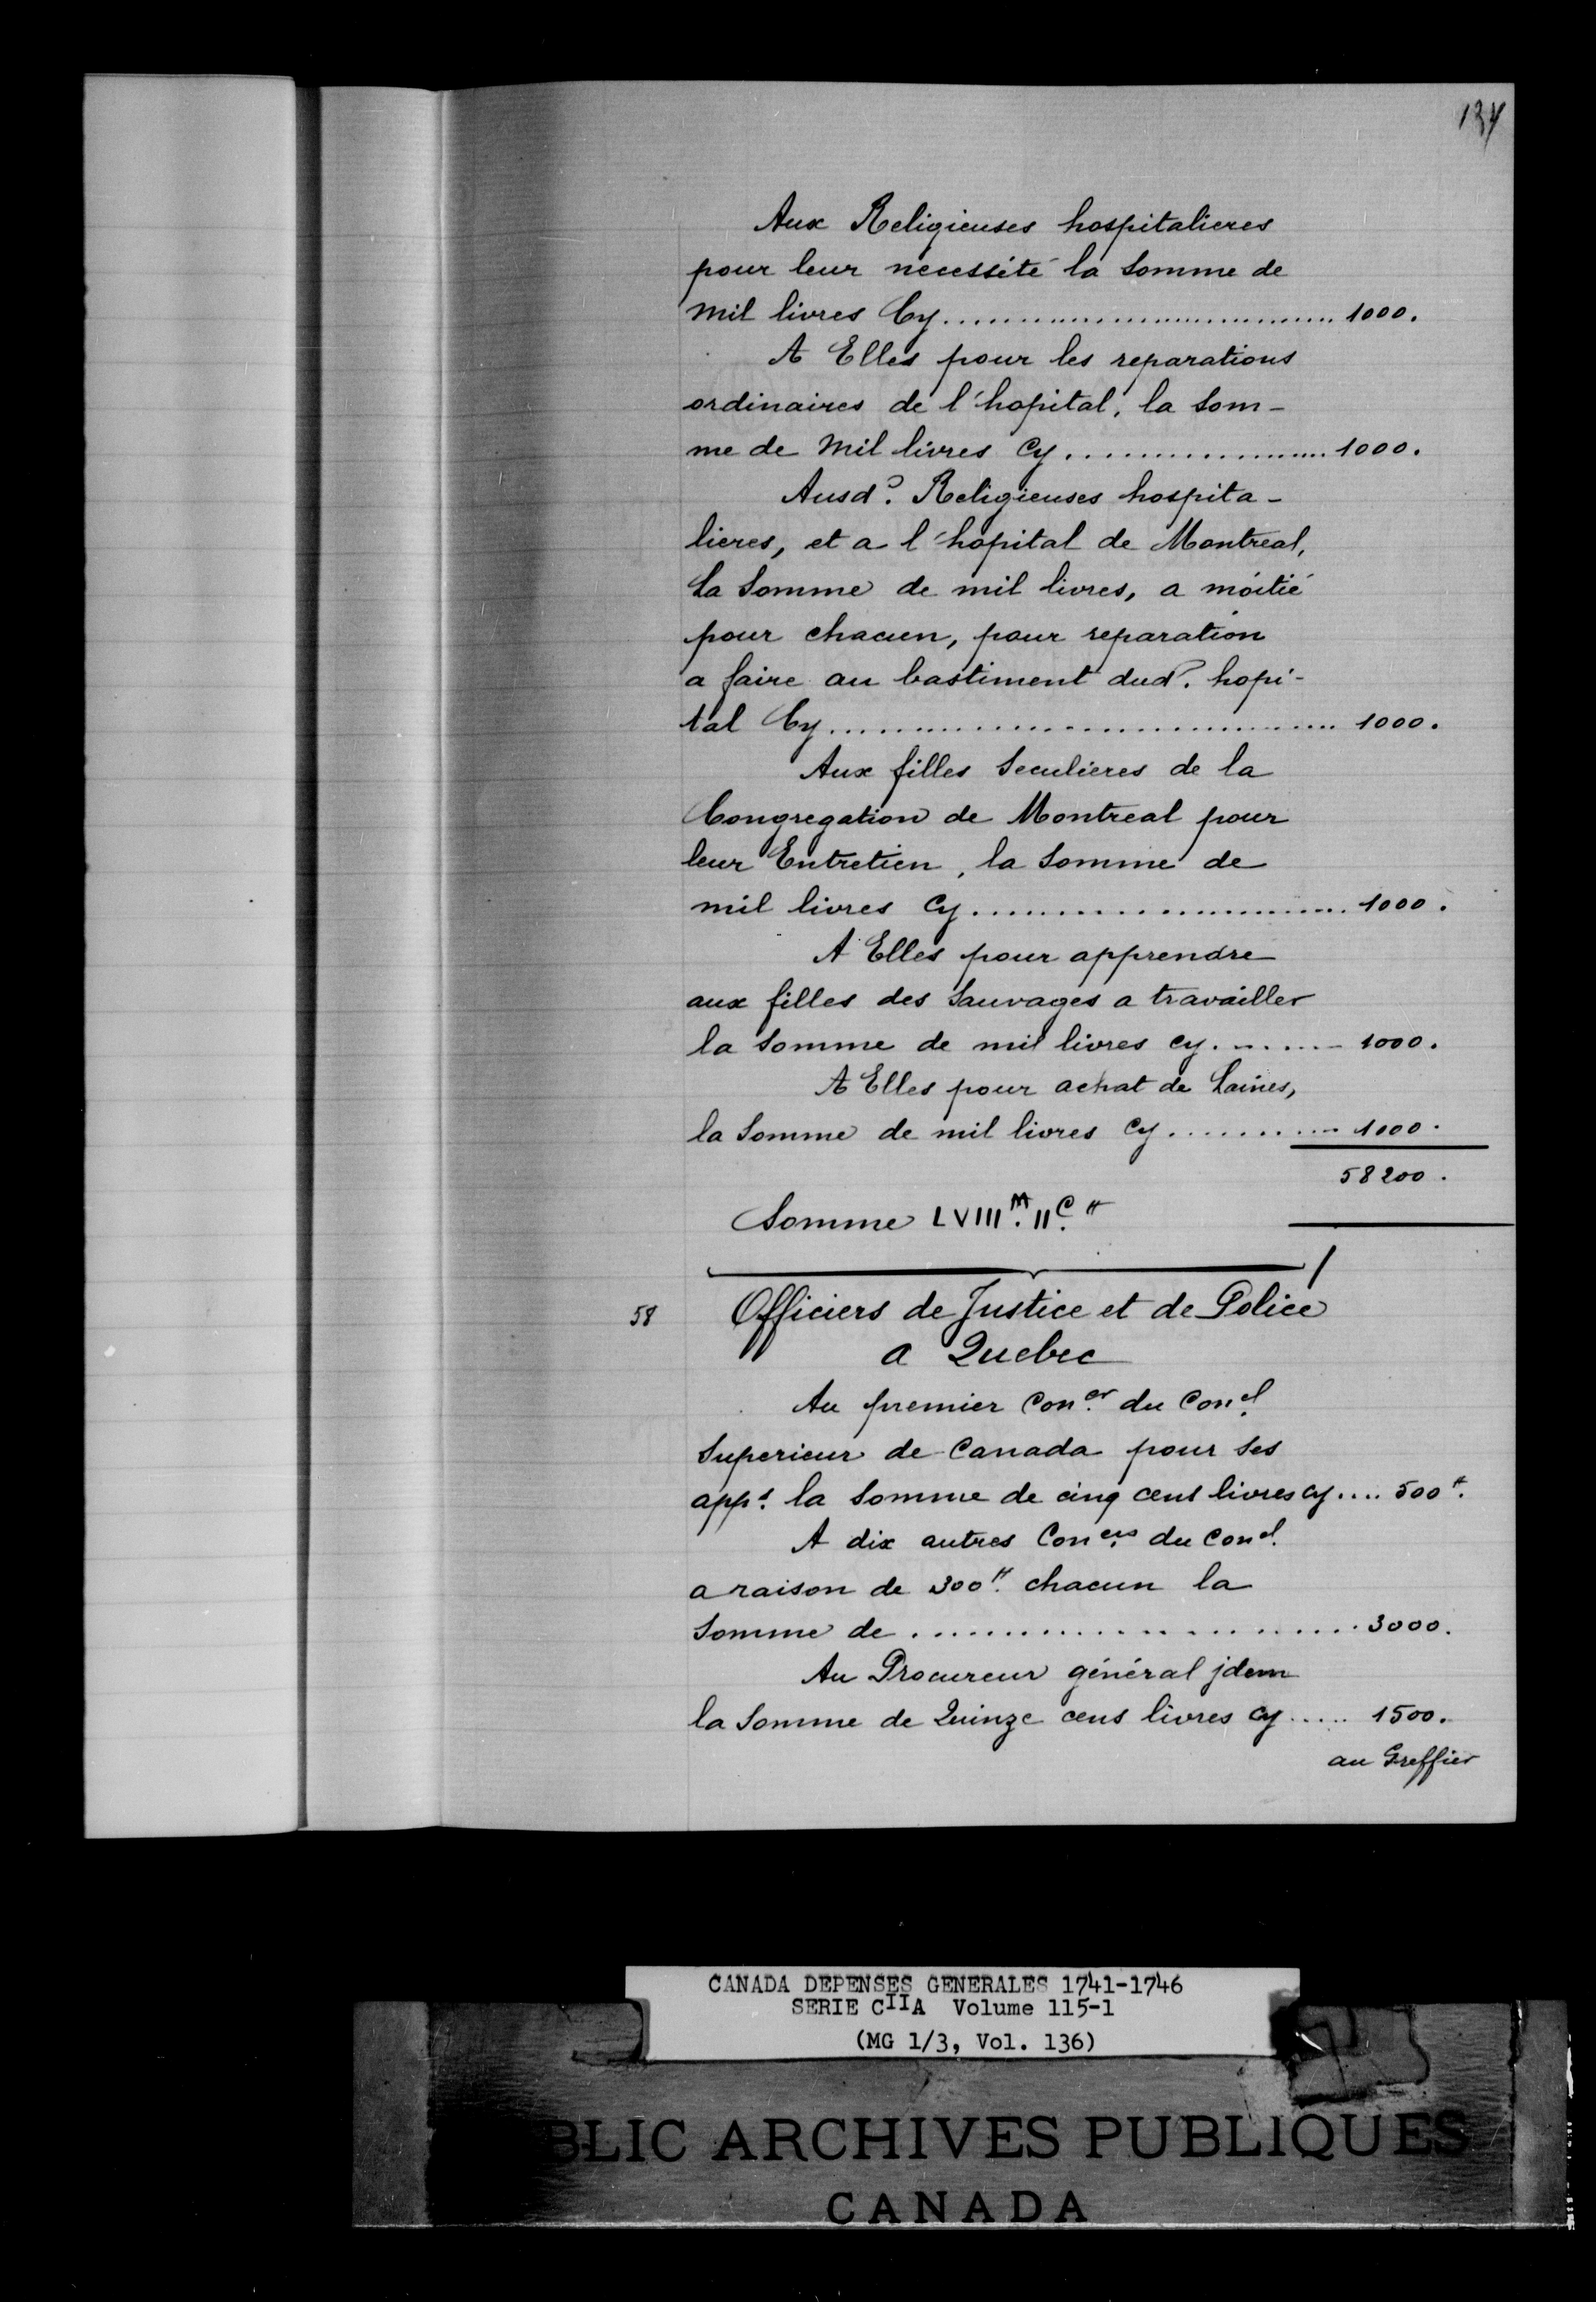 Aux Religieuses hospitalieres
pour leur nécessité la Somme de
Mil livres Cy.................................. 1000.
A Elles pour les reparations
ordinaires de l'hopital, la Som-
me de Mil livres Cy...................... 1000.
Ausd? Religieuses hospita-
lieres, et a l'hopital de Montreal,
La Somme de mil livres, a moitié
pour chacun, pour reparation
a faire au bastiment dud?. hopi-
tal Cy.......................................... 1000.
Aux filles Seculieres de la
Congregation de Montreal pour
leur Entretien, la Somme de
mil livres Cy............................ 1000.
A Elles pour apprendre
aux filles des Sauvages a travailler
la Somme de mil livres Cy......... 1000.
A Elles pour achat de Laines,
la Somme de mil livres Cy............ 1000.
58200.
Somme LVIIIᴹ. IIᶜ. ₶
58 Officiers de Justice et de Police
a Quebec
Au premier Con.er du Con.el
Superieur de Canada pour ses
app.s la Somme de cinq cens livres cy.... 500₶.
A dix autres Con.ers du Con.el
a raison de 300₶. chacun la
Somme de .............................. 3000.
Au Procureur général jdem
la Somme de Quinze cens livres Cy..... 1500.
au Greffier
CANADA DEPENSES GENERALES 1741-1746
SERIE CIIA Volume 115-1
(MG 1/3, Vol. 136)
BLIC ARCHIVES PUBLIQUES
CANADA